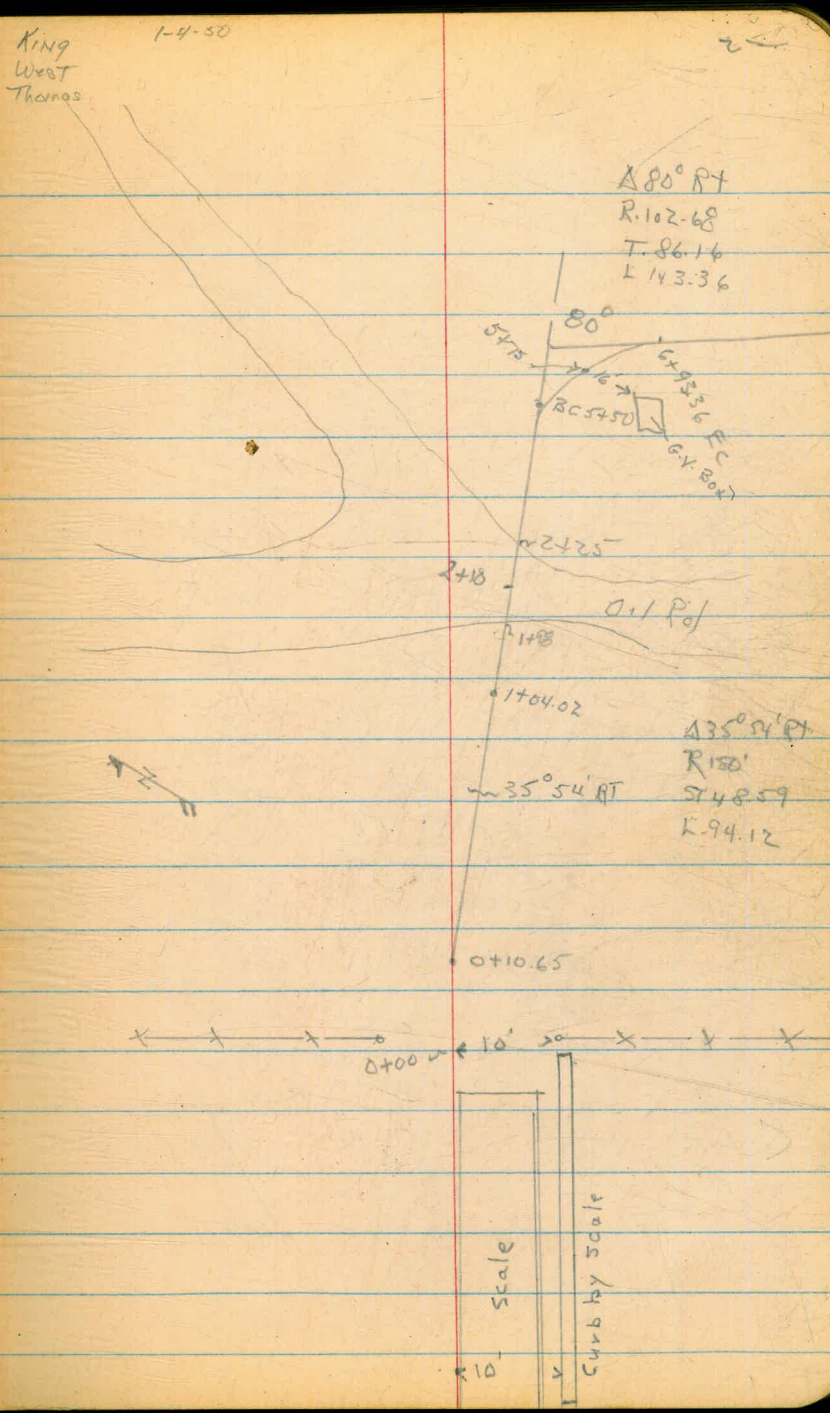 King
West
Thomas
1-4-50
Δ 80° Rt
R. 102.68
T. 86.16
L 143.36
80°
5+75
16'
6+93.36 EC
BC 5+50
G.V. Box
2+25
2+18
1+98
1+04.02
Δ 35° 54' Rt
R 150'
ST 48.59
L. 94.12
N
35° 54' RT
0+10.65
0+00
10'
Scale
Curb by scale
10